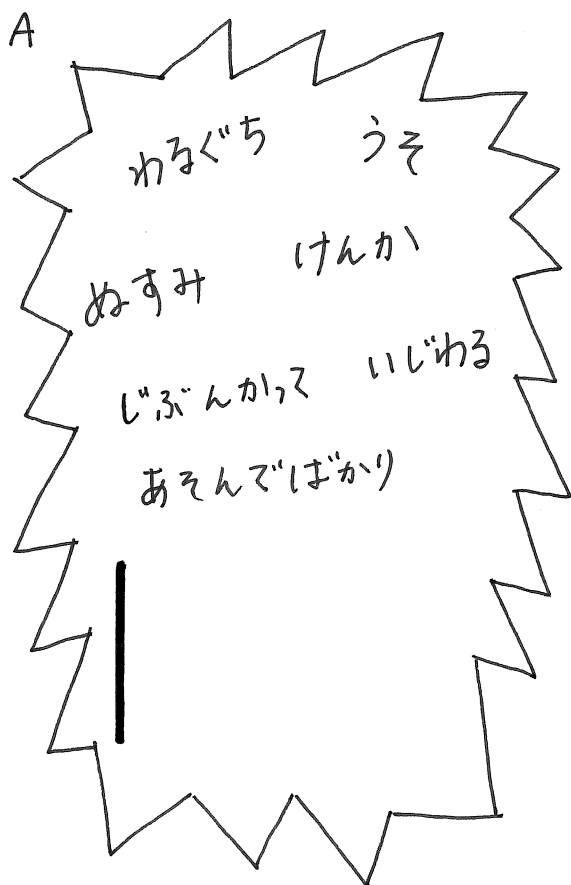 A
わるぐち うそ
ぬすみ けんか
じぶんかって いじわる
あそんでばかり